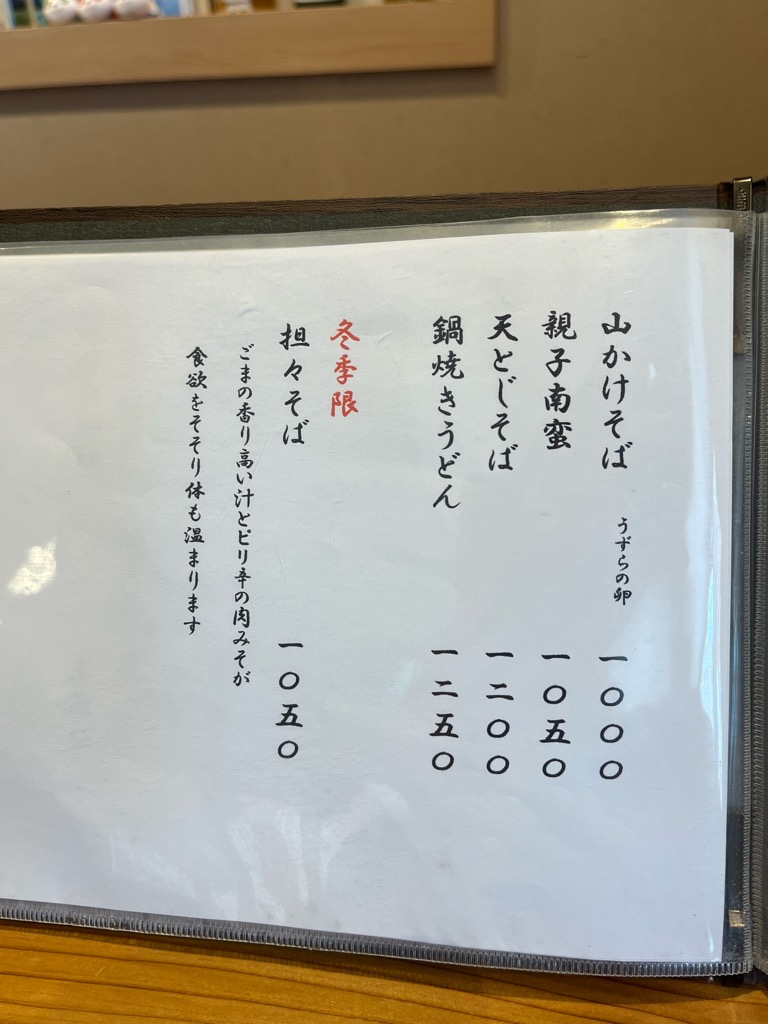 山かけそば　うずらの卵　一〇〇〇
親子南蛮　一〇五〇
天とじそば　一二〇〇
鍋焼きうどん　一二五〇
冬季限
担々そば　一〇五〇
ごまの香り高い汁とピリ辛の肉みそが
食欲をそそり体も温まります